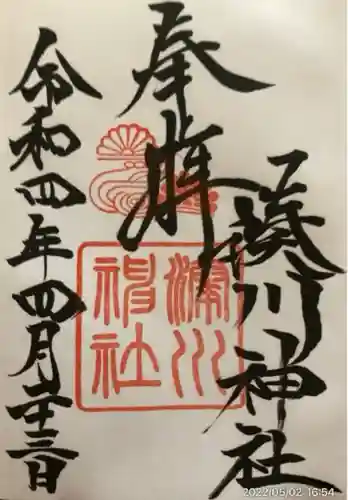 奉拝
湊川神社
湊川神社
令和四年四月二十三日
2022/05/02 16:54